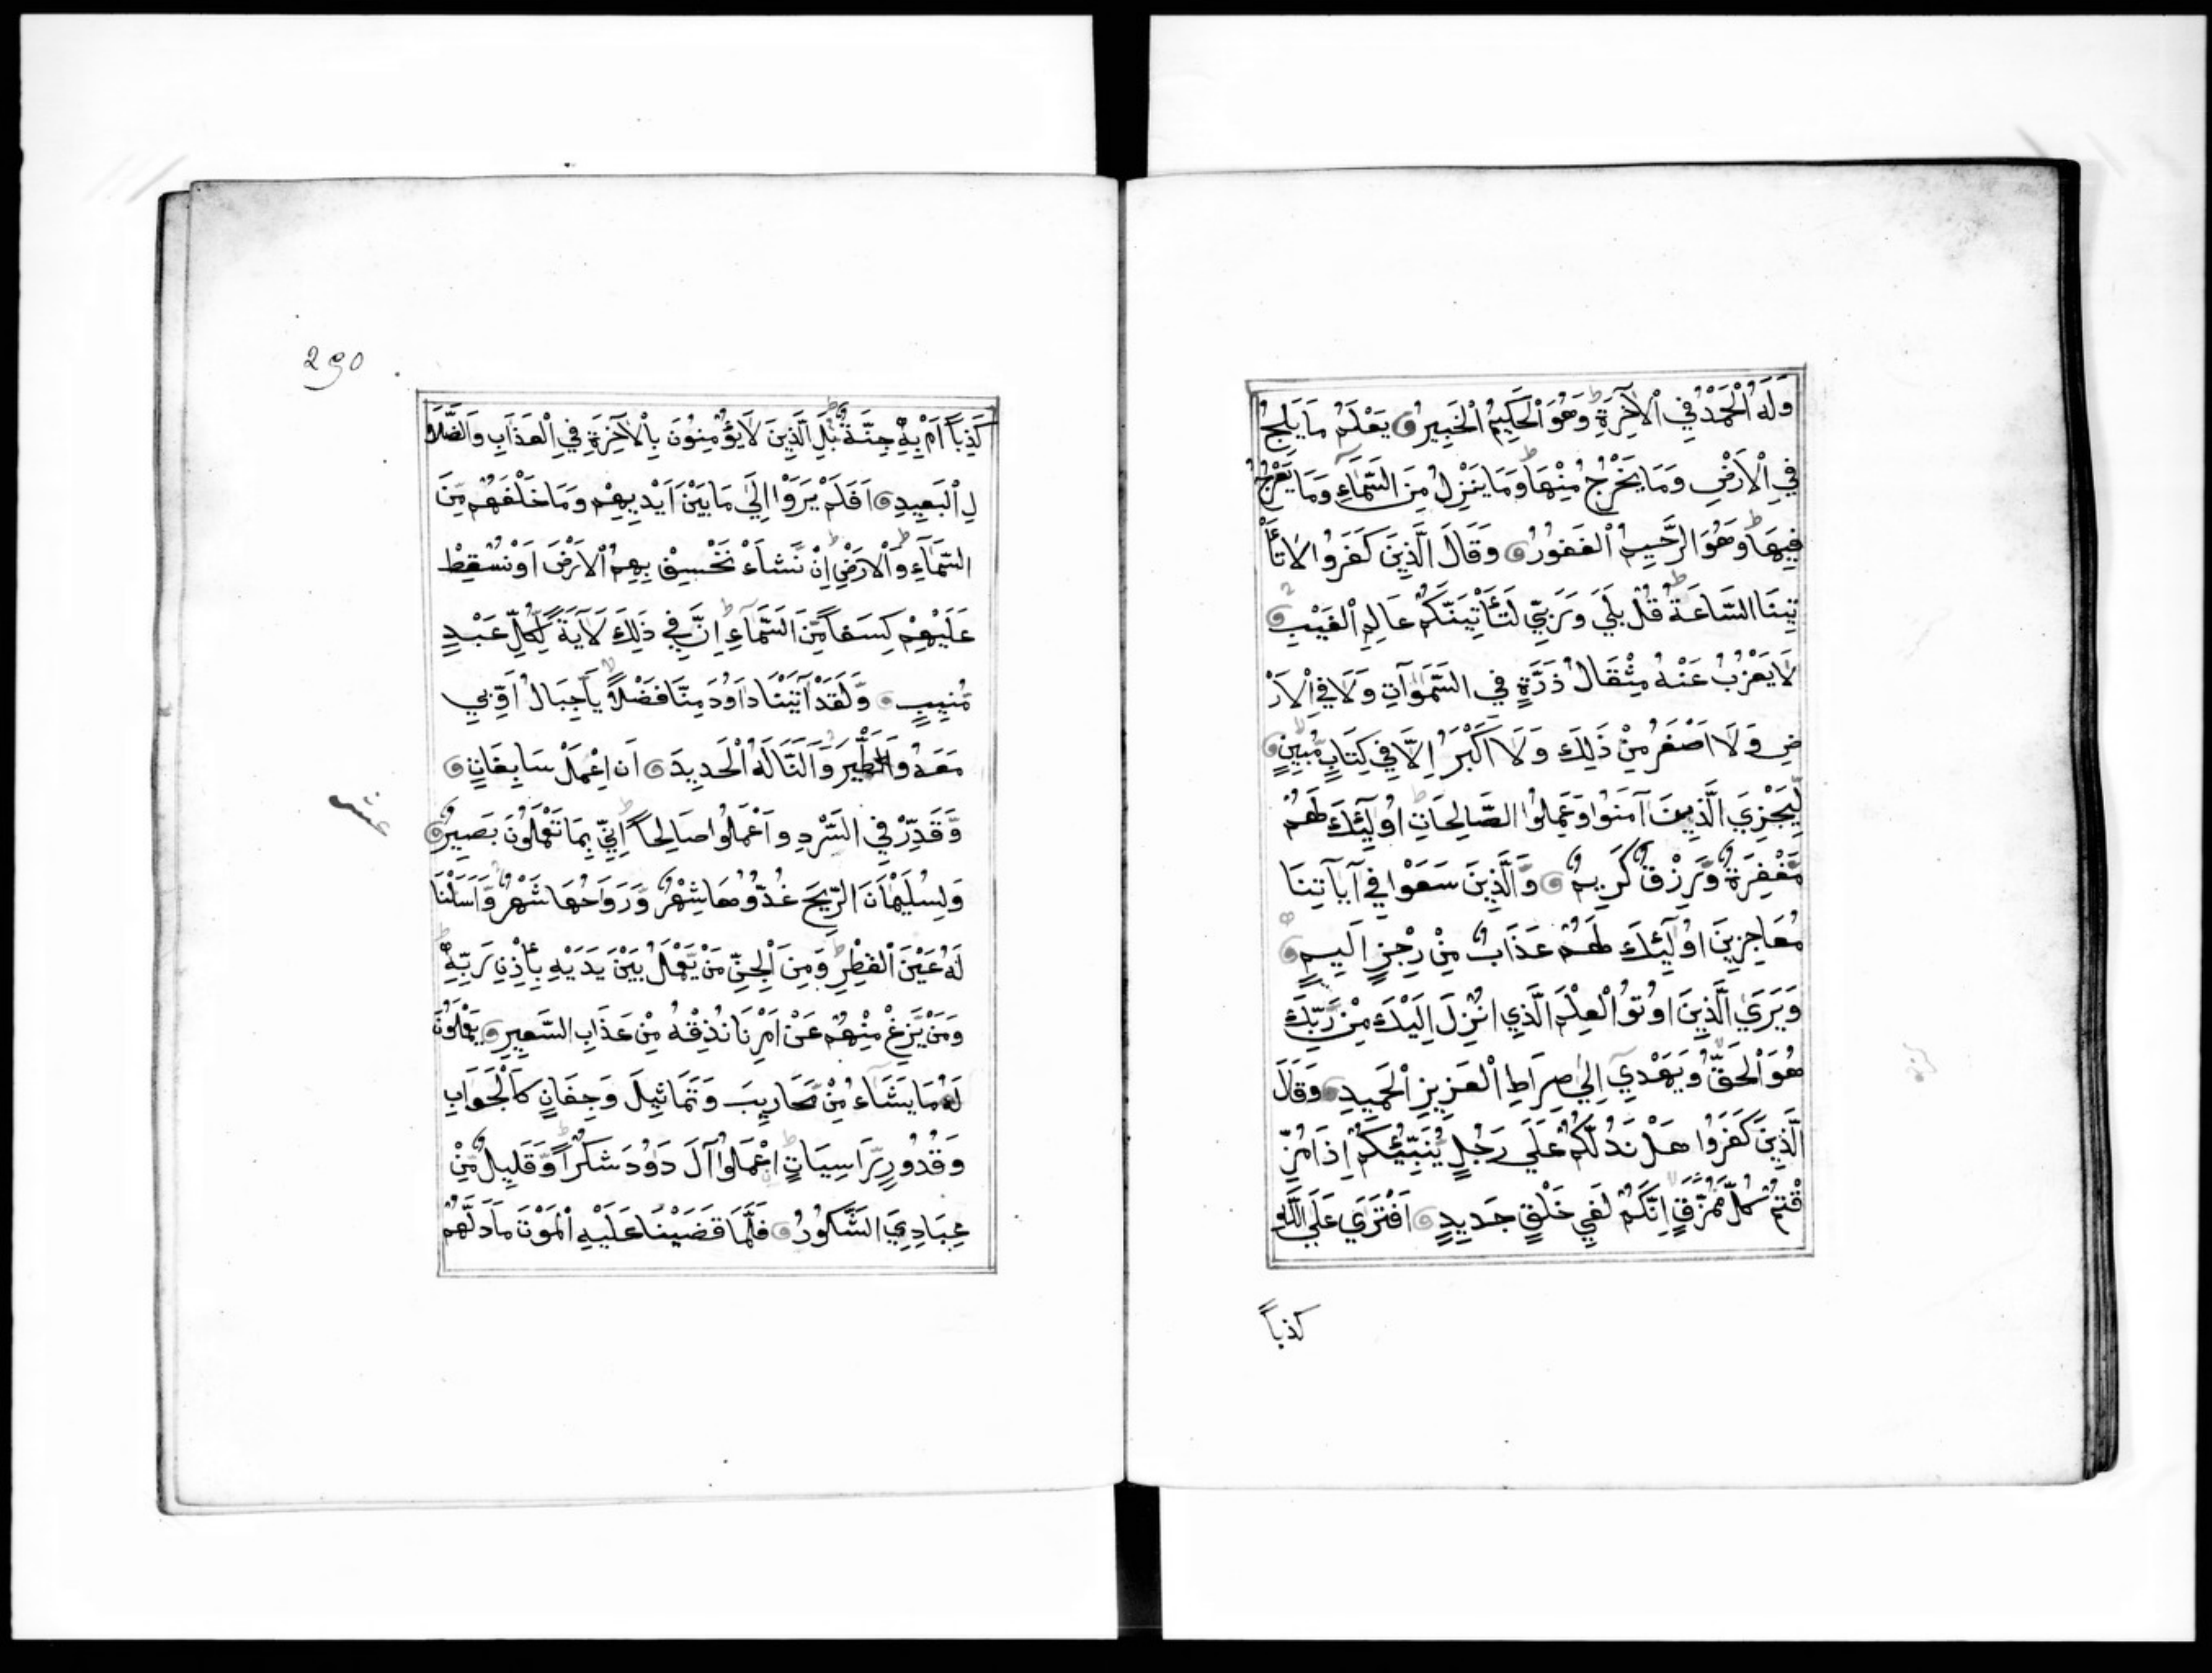 وَلَهُ الْحَمْدُ فِي الْآخِرَةِ ط وَهُوَ الْحَكِيمُ الْخَبِيرُ يَعْلَمُ مَا يَلِجُ
فِي الْاَرْضِ وَمَا يَخْرُجُ مِنْهَا ط وَمَا يَنْزِلُ مِنَ السَّمَآءِ وَمَا يَعْرُجُ
فِيهَا ط وَهُوَ الرَّحِيمُ الْغَفُورُ وَقَالَ الَّذِينَ كَفَرُوا لَا تَأْ
تِينَا السَّاعَةُ ط قُلْ بَلَي وَرَبِّي لَتَأْتِيَنَّكُمْ عَالِمِ الْغَيْبِ
لَا يَعْزُبُ عَنْهُ مِثْقَالُ ذَرَّةٍ فِي السَّمٰوَاتِ وَلَا فِي الْاَرْ
ضِ وَلَا اَصْغَرُ مِنْ ذَلِكَ وَلَا اَكْبَرُ اِلَّا فِي كِتَابٍ مُّبِينٍ
لِيَجْزِيَ الَّذِينَ آمَنُوا وَعَمِلُوا الصَّالِحَاتِ ط اُولَٓئِكَ لَهُمْ
مَّغْفِرَةٌ وَّرِزْقٌ كَرِيمٌ وَّالَّذِينَ سَعَوْا فِي آيَاتِنَا
مُعَاجِزِينَ اُولَٓئِكَ لَهُمْ عَذَابٌ مِنْ رِجْزٍ اَلِيمٍ
وَيَرَي الَّذِينَ اُوتُوا الْعِلْمَ الَّذِي اُنْزِلَ اِلَيْكَ مِنْ رَّبِّكَ
هُوَ الْحَقُّ وَيَهْدِي اِلَي صِرَاطِ الْعَزِيزِ الْحَمِيدِ وَقَالَ
الَّذِينَ كَفَرُوا هَلْ نَدُلُّكُمْ عَلَي رَجُلٍ يُّنَبِّئُكُمْ اِذَا مُزِّ
قْتُمْ كُلَّ مُمَزَّقٍ اِنَّكُمْ لَفِي خَلْقٍ جَدِيدٍ اَفْتَرَي عَلَي اللَّهِ
كذباً
290
كَذِباً اَمْ بِهِ جِنَّةٌ ط بَلِ الَّذِينَ لَا يُؤْمِنُونَ بِالْآخِرَةِ فِي الْعَذَابِ وَالضَّلَا
لِ الْبَعِيدِ اَفَلَمْ يَرَوْا اِلَي مَا بَيْنَ اَيْدِيهِمْ وَمَا خَلْفَهُمْ مِّنَ
السَّمَآءِ وَالْاَرْضِ ط اِنْ نَّشَاْ نَخْسِفْ بِهِمُ الْاَرْضَ اَوْ نُسْقِطْ
عَلَيْهِمْ كِسَفاً مِّنَ السَّمَآءِ ط اِنَّ فِي ذَلِكَ لَآيَةً لِّكُلِّ عَبْدٍ
مُّنِيبٍ وَّلَقَدْ آتَيْنَا دَاوُدَ مِنَّا فَضْلاً يَاجِبَالُ اَوِّبِي
مَعَهُ وَالطَّيْرَ وَاَلَنَّا لَهُ الْحَدِيدَ اَنِ اعْمَلْ سَابِغَاتٍ
وَّقَدِّرْ فِي السَّرْدِ وَاعْمَلُوا صَالِحاً ط اِنِّي بِمَا تَعْمَلُونَ بَصِيرٌ
وَلِسُلَيْمَانَ الرِّيحَ غُدُوُّهَا شَهْرٌ وَّرَوَاحُهَا شَهْرٌ وَّاَسَلْنَا
لَهُ عَيْنَ الْقِطْرِ ط وَمِنَ الْجِنِّ مَنْ يَّعْمَلُ بَيْنَ يَدَيْهِ بِاِذْنِ رَبِّهِ ط
وَمَنْ يَّزِغْ مِنْهُمْ عَنْ اَمْرِنَا نُذِقْهُ مِنْ عَذَابِ السَّعِيرِ يَعْمَلُونَ
لَهُ مَا يَشَآءُ مِنْ مَّحَارِيبَ وَتَمَاثِيلَ وَجِفَانٍ كَالْجَوَابِ
وَقُدُورٍ رَّاسِيَاتٍ ط اِعْمَلُوا آلَ دَاوُدَ شُكْراً ط وَّقَلِيلٌ مِّنْ
عِبَادِيَ الشَّكُورُ فَلَمَّا قَضَيْنَا عَلَيْهِ الْمَوْتَ مَا دَلَّهُمْ